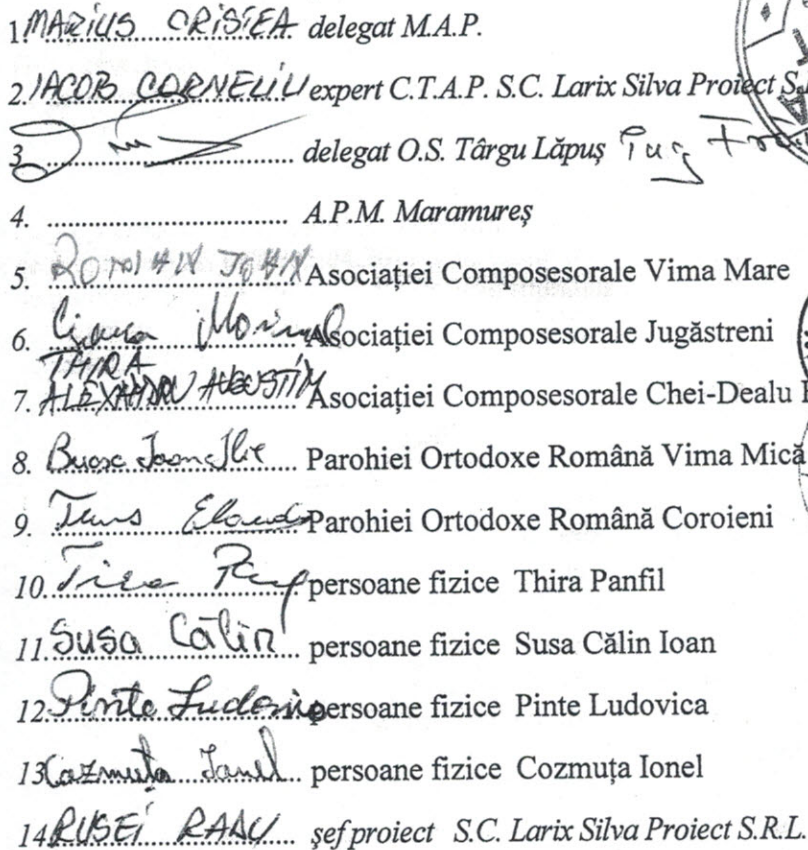 1. MARIUS CRISTEA delegat M.A.P.
2. IACOB CORNELIU expert C.T.A.P. S.C. Larix Silva Proiect S.
3. delegat O.S. Târgu Lăpuș
4. A.P.M. Maramureș
5. ROMAN IOAN Asociației Composesorale Vima Mare
6. Asociației Composesorale Jugăstreni
THIRA
7. ALEXANDRU AUGUSTIN Asociației Composesorale Chei-Dealu
8. Parohiei Ortodoxe Română Vima Mică
9. Parohiei Ortodoxe Română Coroieni
10. persoane fizice Thira Panfil
11. Susa Călin persoane fizice Susa Călin Ioan
12. Pinte Ludovica persoane fizice Pinte Ludovica
13. Cozmuța Ionel persoane fizice Cozmuța Ionel
14. RUSEI RADU șef proiect S.C. Larix Silva Proiect S.R.L.